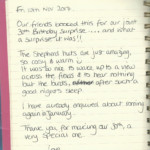 Fri 10th Nov 2017.
Our friends booked this for our joint
30th Birthday Surprise ..... and what
a surprise it was!!
The Shepherd huts are just amazing,
so cosy & warm
It was so nice to wake up to a view
across the fields & to hear nothing
but the birds, after such a
good nights sleep.
I have already enquired about coming
again in January.
Thank you for making our 30th, a
very special one.